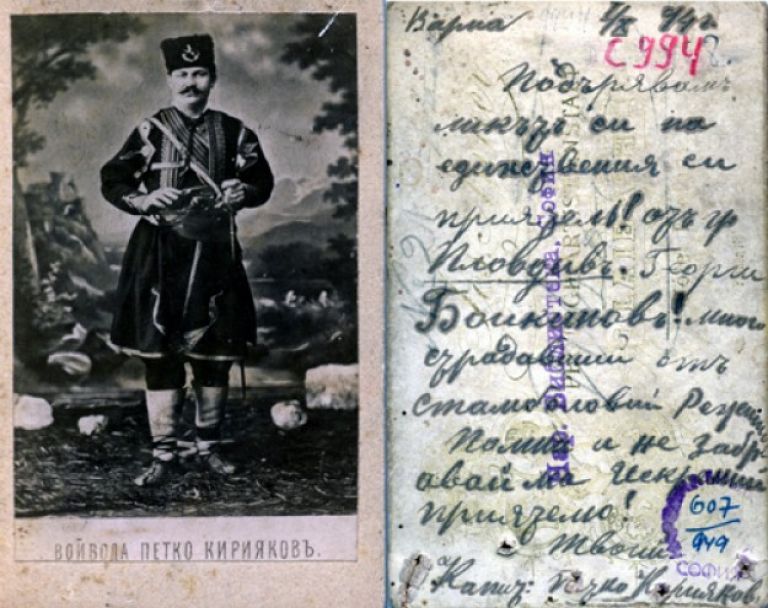 ВОЙВОДА ПЕТКО КИРИЯКОВЪ.
Варна
С 994
Подърявамъ
ликътъ си на
единствения си
приятель! отъ гр
Пловдивъ. Георги
Бойкиновъ! много
страдавший отъ
стамболовий
Помни и не забр
авяй ма Искрений
приятелю!
Твой
Капит: Петко Кирияков.
Нар. Библиотека, София
607
949
СОФИЯ